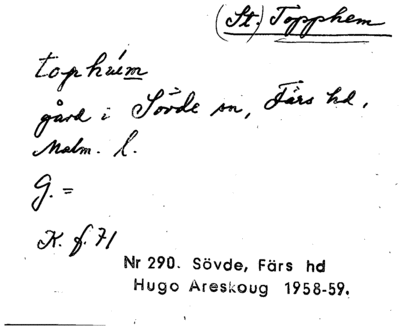 (St.) Topphem
tophɯ́em
gård i Sövde sn, Färs hd,
Malm. l.
G. =
K. f. 71
Nr 290. Sövde, Färs hd
Hugo Areskoug 1958-59.